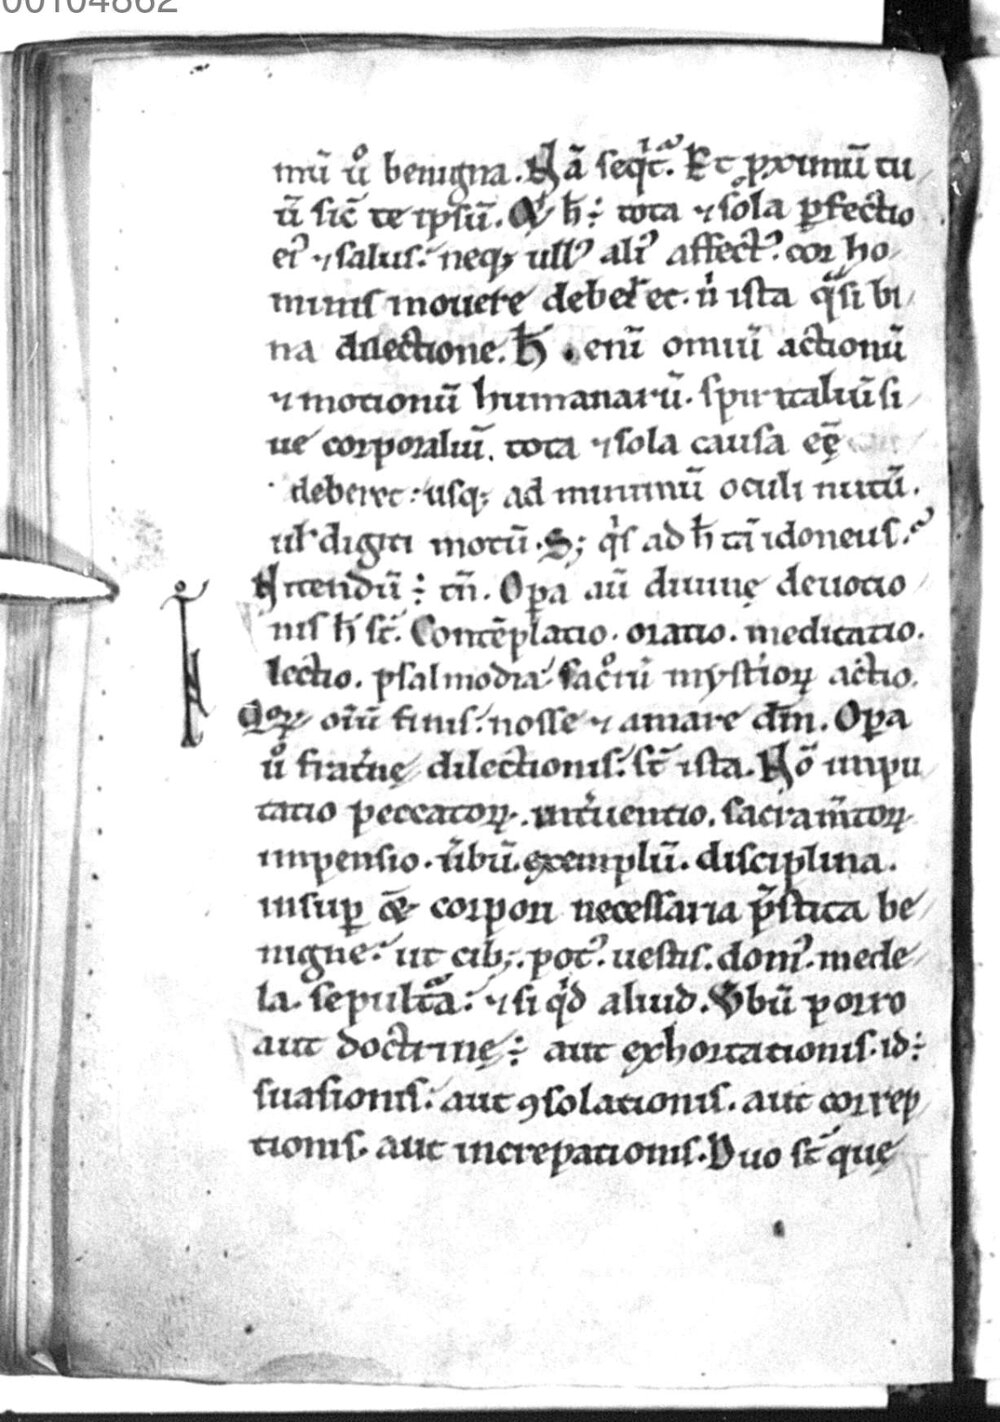 00104862
mū ů benigna. Nā seq̇tᷓ. Et ꝓximū tu
ū sic̄ te ipsū. Q' h̄: tota ⁊ sola ꝑfectio
ei᾽ ⁊ salus. neq; ull᾽ ali᾽ affect᾽ cor ho
minis mouere deberet. n̓ ista q̓si bi
na dilectione. h̄ . eni̅ omniū actionū
⁊ motionū humanarū. spiritaliū si
ue corporaliū. tota ⁊ sola causa eē
deberet: usq; ad minimū oculi nutū.
ul̵ digiti motū. S; q̓s ad h̄ tā idoneus.
Intendū: tn̄. Oꝑa aū diuinę deuotio
nis h̄ st̄. Contēplatio. oratio. meditatio.
lectio. psalmodia. sac̊rū myst̓ioꝝ actio.
Qoꝝ oīū finis. nosse ⁊ amare dm̄. Oꝑa
ů frat̓nę dilectionis. st̄ ista. Nō inpu
tatio peccatoꝝ. int̓uentio. sacram̄toꝝ
impensio. u̓bū. exemplū. disciplina.
insuꝑ om̄e corpori necessaria p̄stita be
nigne. ut cib;. pot᾽. uestis. dom᾽. mede
la. sepultᷓa. ⁊ si q̓d aliud. V̓bū porro
aut doctrinę: aut exhortationis. id:
suasionis. aut ꝯsolationis. aut correp
tionis. aut increpationis. Duo st̄ quę